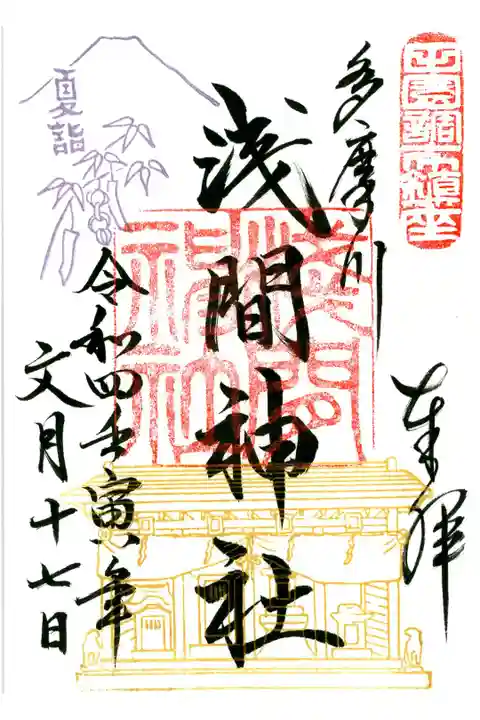 多摩川
奉拝
浅間神社
浅間神社
夏詣
令和四壬寅年
文月十七日